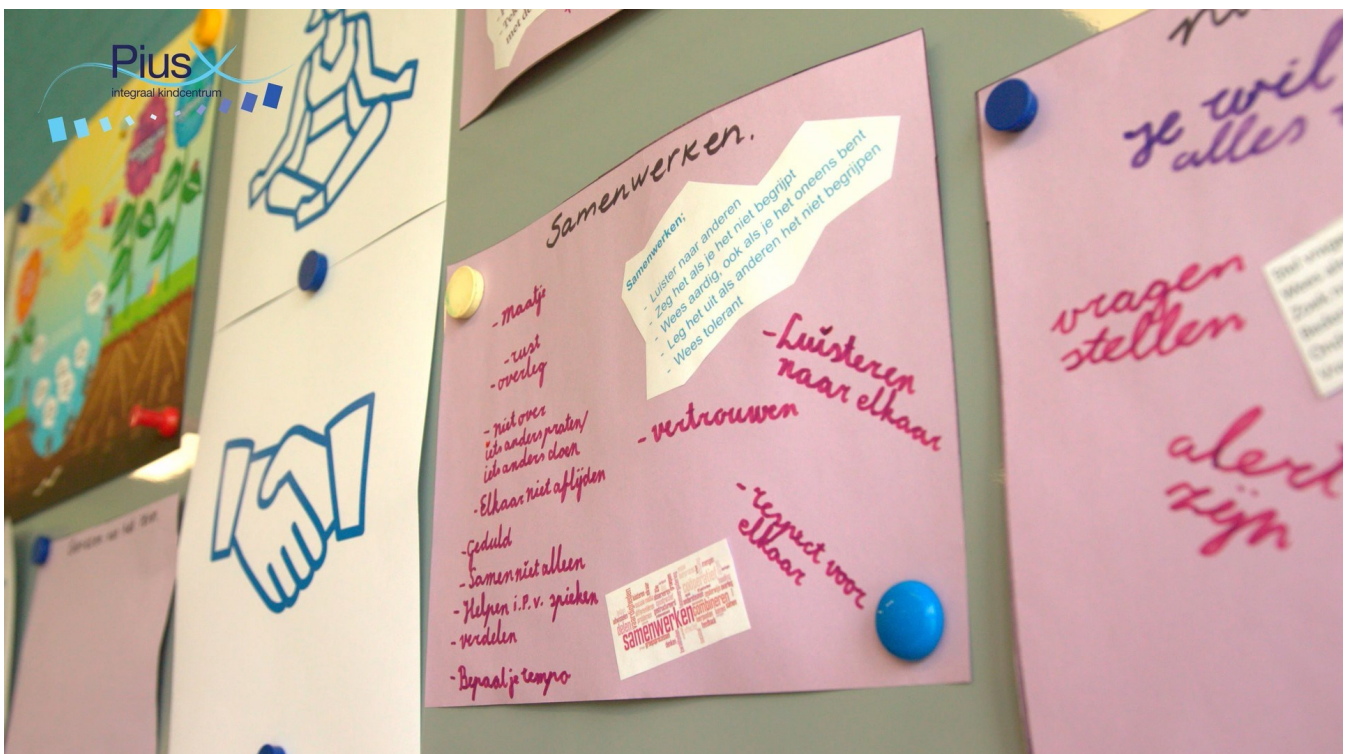 PiusX
integraal kindcentrum
met de
Samenwerken.
Samenwerken;
- Luister naar anderen
- Zeg het als je het niet begrijpt
- Wees aardig, ook als je het oneens bent
- Leg het uit als anderen het niet begrijpen
- Wees tolerant
- maatje
- rust
- overleg
- niet over
iets anders praten/
iets anders doen
- Elkaar niet aflijden
- geduld
- Samen niet alleen
- Helpen i.p.v. spieken
- verdelen
- Bepaal je tempo
- Luisteren
naar elkaar
- vertrouwen
- respect voor
elkaar
samenwerken
combineren
je wil
alles
vragen
stellen
alert
zijn